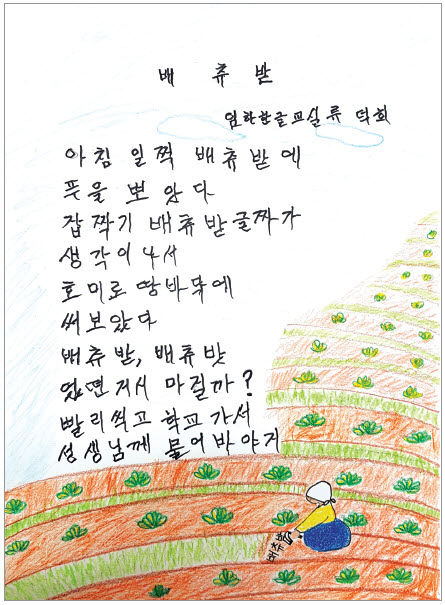 배 츄 받
임한한글교실 류 덕희
아침 일찍 배츄받에
푸을 뽀 았다
갑짝기 배츄받글짜가
생각이 나서
호미로 땅바닥에
써보았다
배츄받, 배츄밧
었면거시 마걸까?
빨리씩고 학교 가서
성생님께 물어바야지